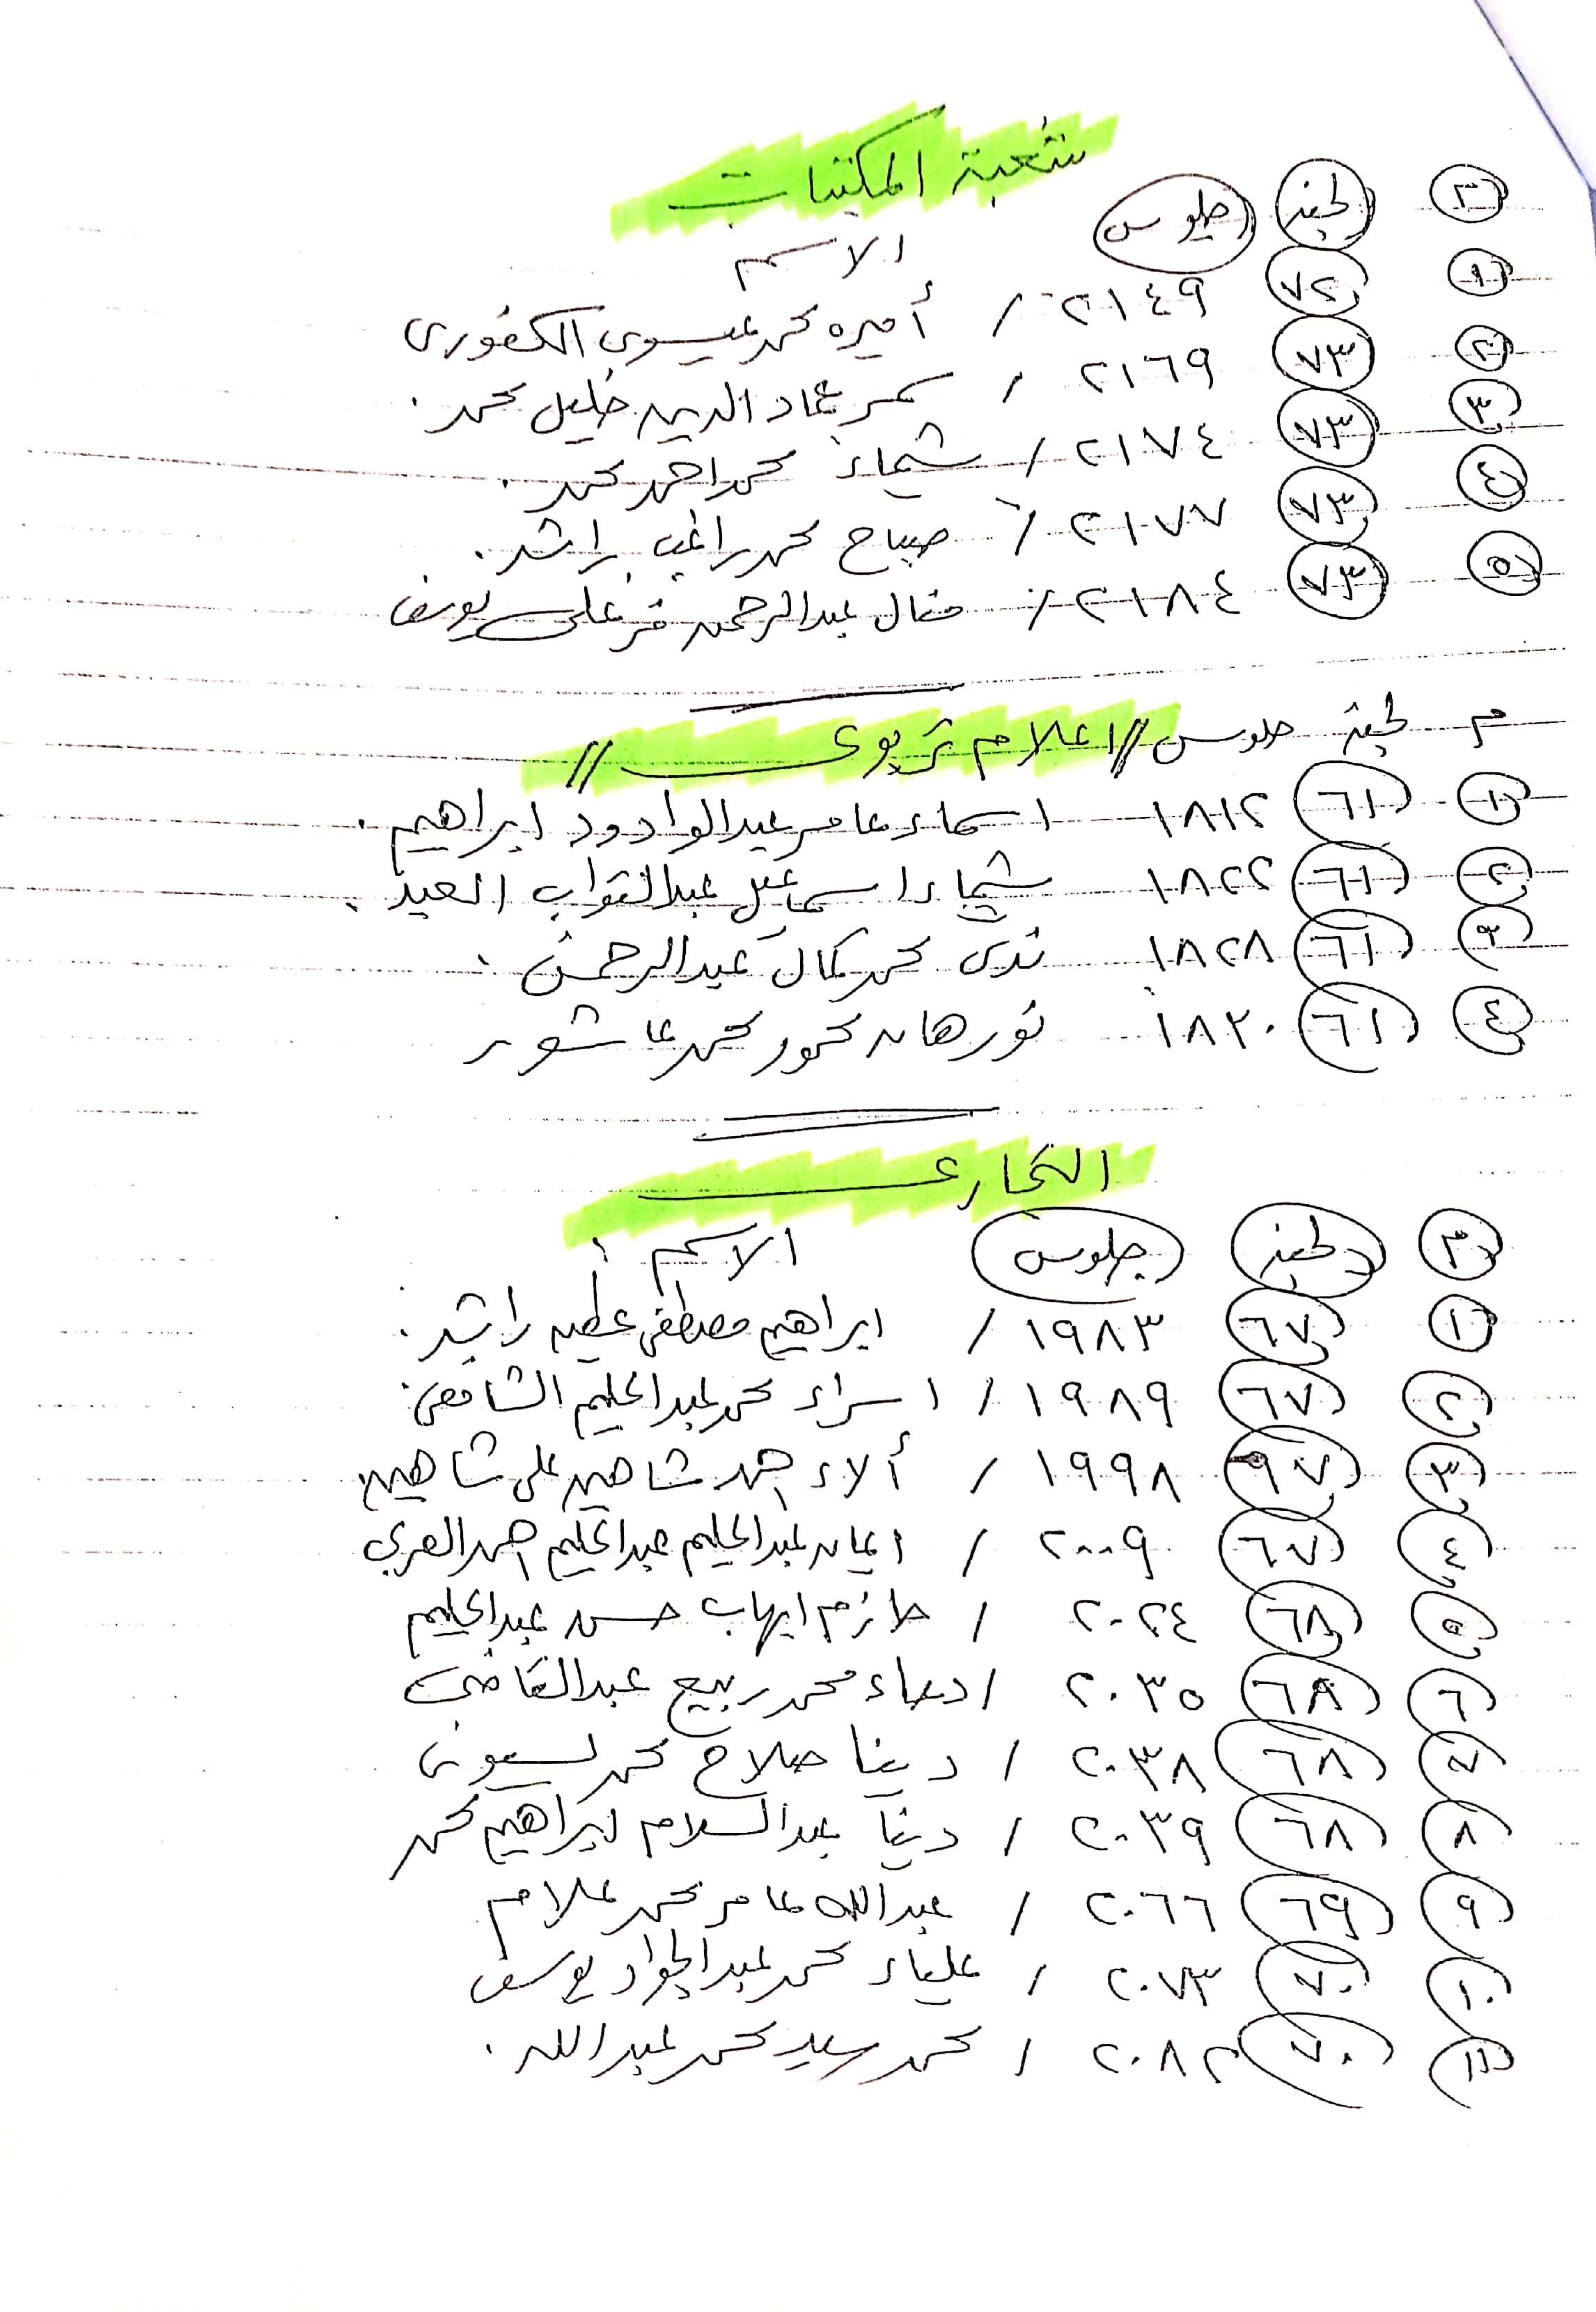 شعبة المكتبات
م لجنة جلوس الاسم
١ ٧٢ ٢١٤٩ / أميره محمد عيسوى الكفورى
٢ ٧٣ ٢١٦٩ / سمر عماد الدين خليل محمد .
٣ ٧٣ ٢١٧٤ / شيماء محمد احمد محمد .
٤ ٧٣ ٢١٧٧ / صباح محمد راغب راشد .
٥ ٧٣ ٢١٨٤ / منال عبدالرحمن على يوسف
م لجنة جلوس // اعلام تربوى //
١ ٦١ ١٨١٢ اسماء عامر عبدالوادود ابراهيم .
٢ ٦١ ١٨٢٢ شيماء اسماعيل عبدالتواب العبد .
٣ ٦١ ١٨٢٨ ندى محمد كمال عبدالرحمن .
٤ ٦١ ١٨٣٠ نورهان محمود محمد عاشور
التجارى
م لجنة جلوس الاسم
١ ٦٧ ١٩٨٣ / ابراهيم مصطفى عطيه راشد .
٢ ٦٧ ١٩٨٩ / اسراء محمد عبدالحليم الشافعى .
٣ ٦٧ ١٩٩٨ / ألاء احمد شاهين على شاهين
٤ ٦٧ ٢٠٠٩ / ايمان عبدالحليم عبدالحليم احمد
٥ ٦٨ ٢٠٢٤ / حازم ايهاب حسن عبدالحليم
٦ ٦٨ ٢٠٣٥ / دعاء محمد ربيع عبدالقاضى
٧ ٦٨ ٢٠٣٨ / دينا صلاح محمد بسيونى
٨ ٦٨ ٢٠٣٩ / دينا عبدالسلام ابراهيم محمد
٩ ٦٩ ٢٠٦٦ / عبدالله عامر محمد علام
١٠ ٧٠ ٢٠٧٣ / علياء محمد عبدالجواد يوسف
١١ ٧٠ ٢٠٨٢ / محمد سعيد محمد عبدالله .